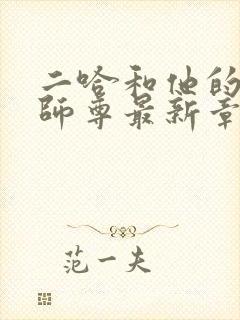 二哈和他的
师尊最新章
范一夫